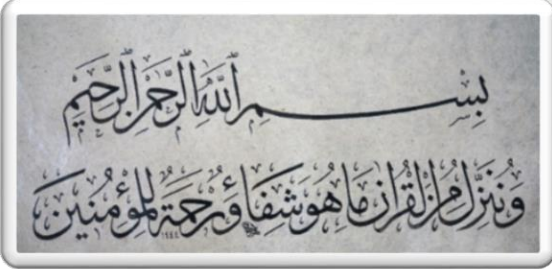 بِسْمِ اللّٰهِ الرَّحْمٰنِ الرَّحِيْمِ
وَنُنَزِّلُ مِنَ الْقُرْآنِ مَا هُوَ شِفَاءٌ وَرَحْمَةٌ لِلْمُؤْمِنِينَ
١٤٤٤